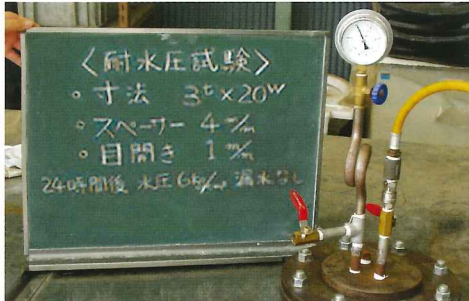 〈耐水圧試験〉
・寸法 3ᵗ×20ᵂ
・スペーサー 4 m/m
・目開き 1 m/m
24時間後 水圧6kg/cm² 漏水なし